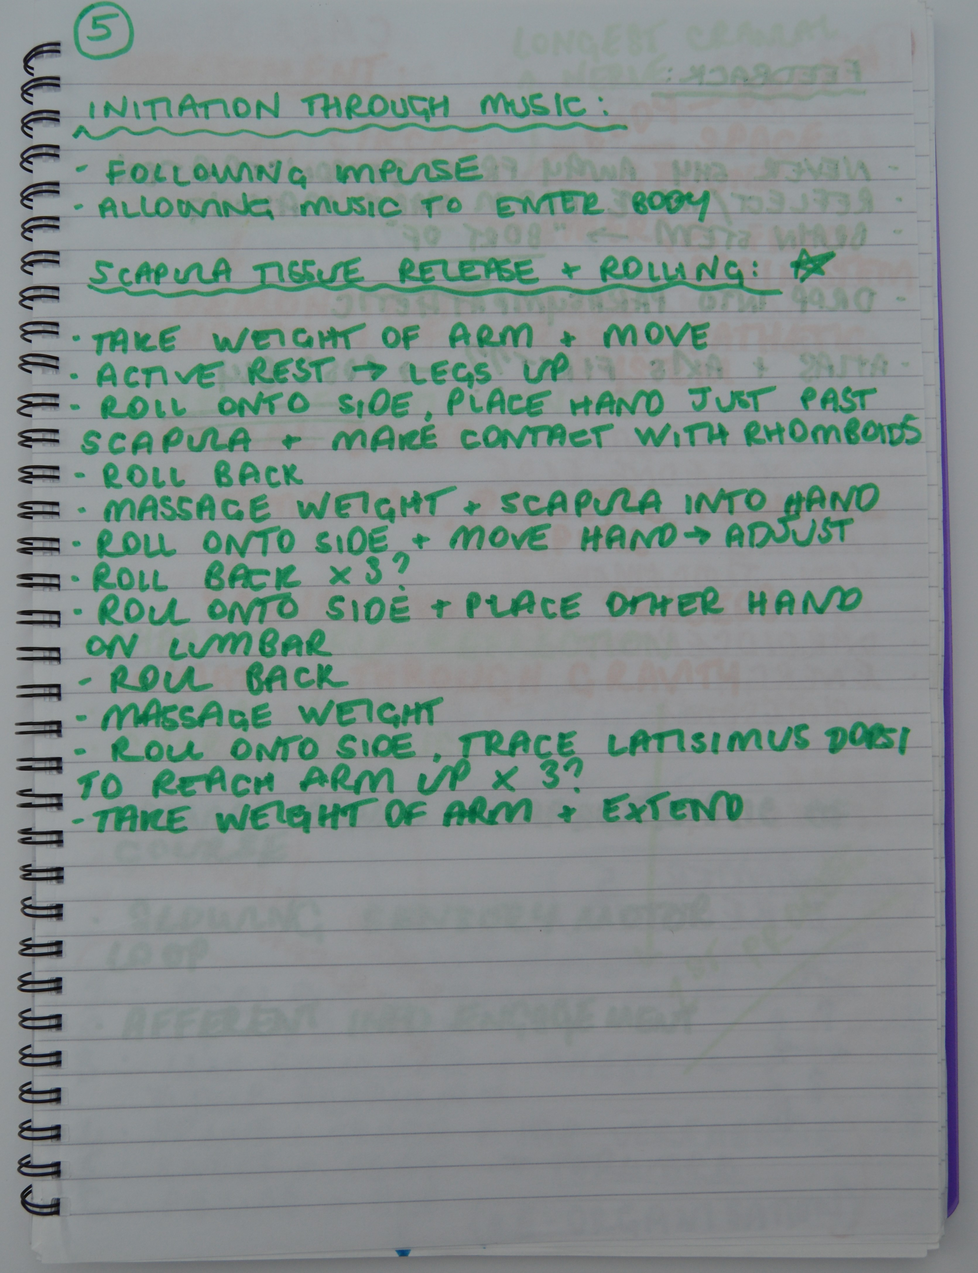 5
INITIATION THROUGH MUSIC:
· FOLLOWING IMPULSE
· ALLOWING MUSIC TO ENTER BODY
SCAPULA TISSUE RELEASE + ROLLING: ☆
· TAKE WEIGHT OF ARM + MOVE
· ACTIVE REST → LEGS UP
· ROLL ONTO SIDE, PLACE HAND JUST PAST
SCAPULA + MAKE CONTACT WITH RHOMBOIDS
· ROLL BACK
· MASSAGE WEIGHT + SCAPULA INTO HAND
· ROLL ONTO SIDE + MOVE HAND → ADJUST
· ROLL BACK X 3?
· ROLL ONTO SIDE + PLACE OTHER HAND
ON LUMBAR
- ROLL BACK
· MASSAGE WEIGHT
· ROLL ONTO SIDE, TRACE LATISIMUS DORSI
TO REACH ARM UP X 3?
· TAKE WEIGHT OF ARM + EXTEND